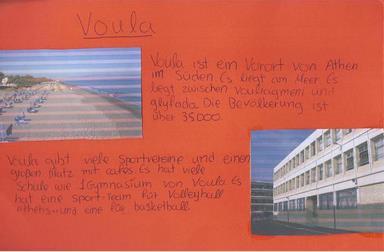 Voula
Voula ist ein Vorort von Athen
im Süden. Es liegt am Meer. Es
liegt zwischen Vouliagmeni und
glyfada. Die Bevölkerung ist
über 35000.
Voula gibt viele Sportvereine und einen
großen Platz mit cafes. Es hat viele
Schule wie 1 Gymnasium von Voula. Es
hat eine sport-Team für Volleyball
und eine für basketball